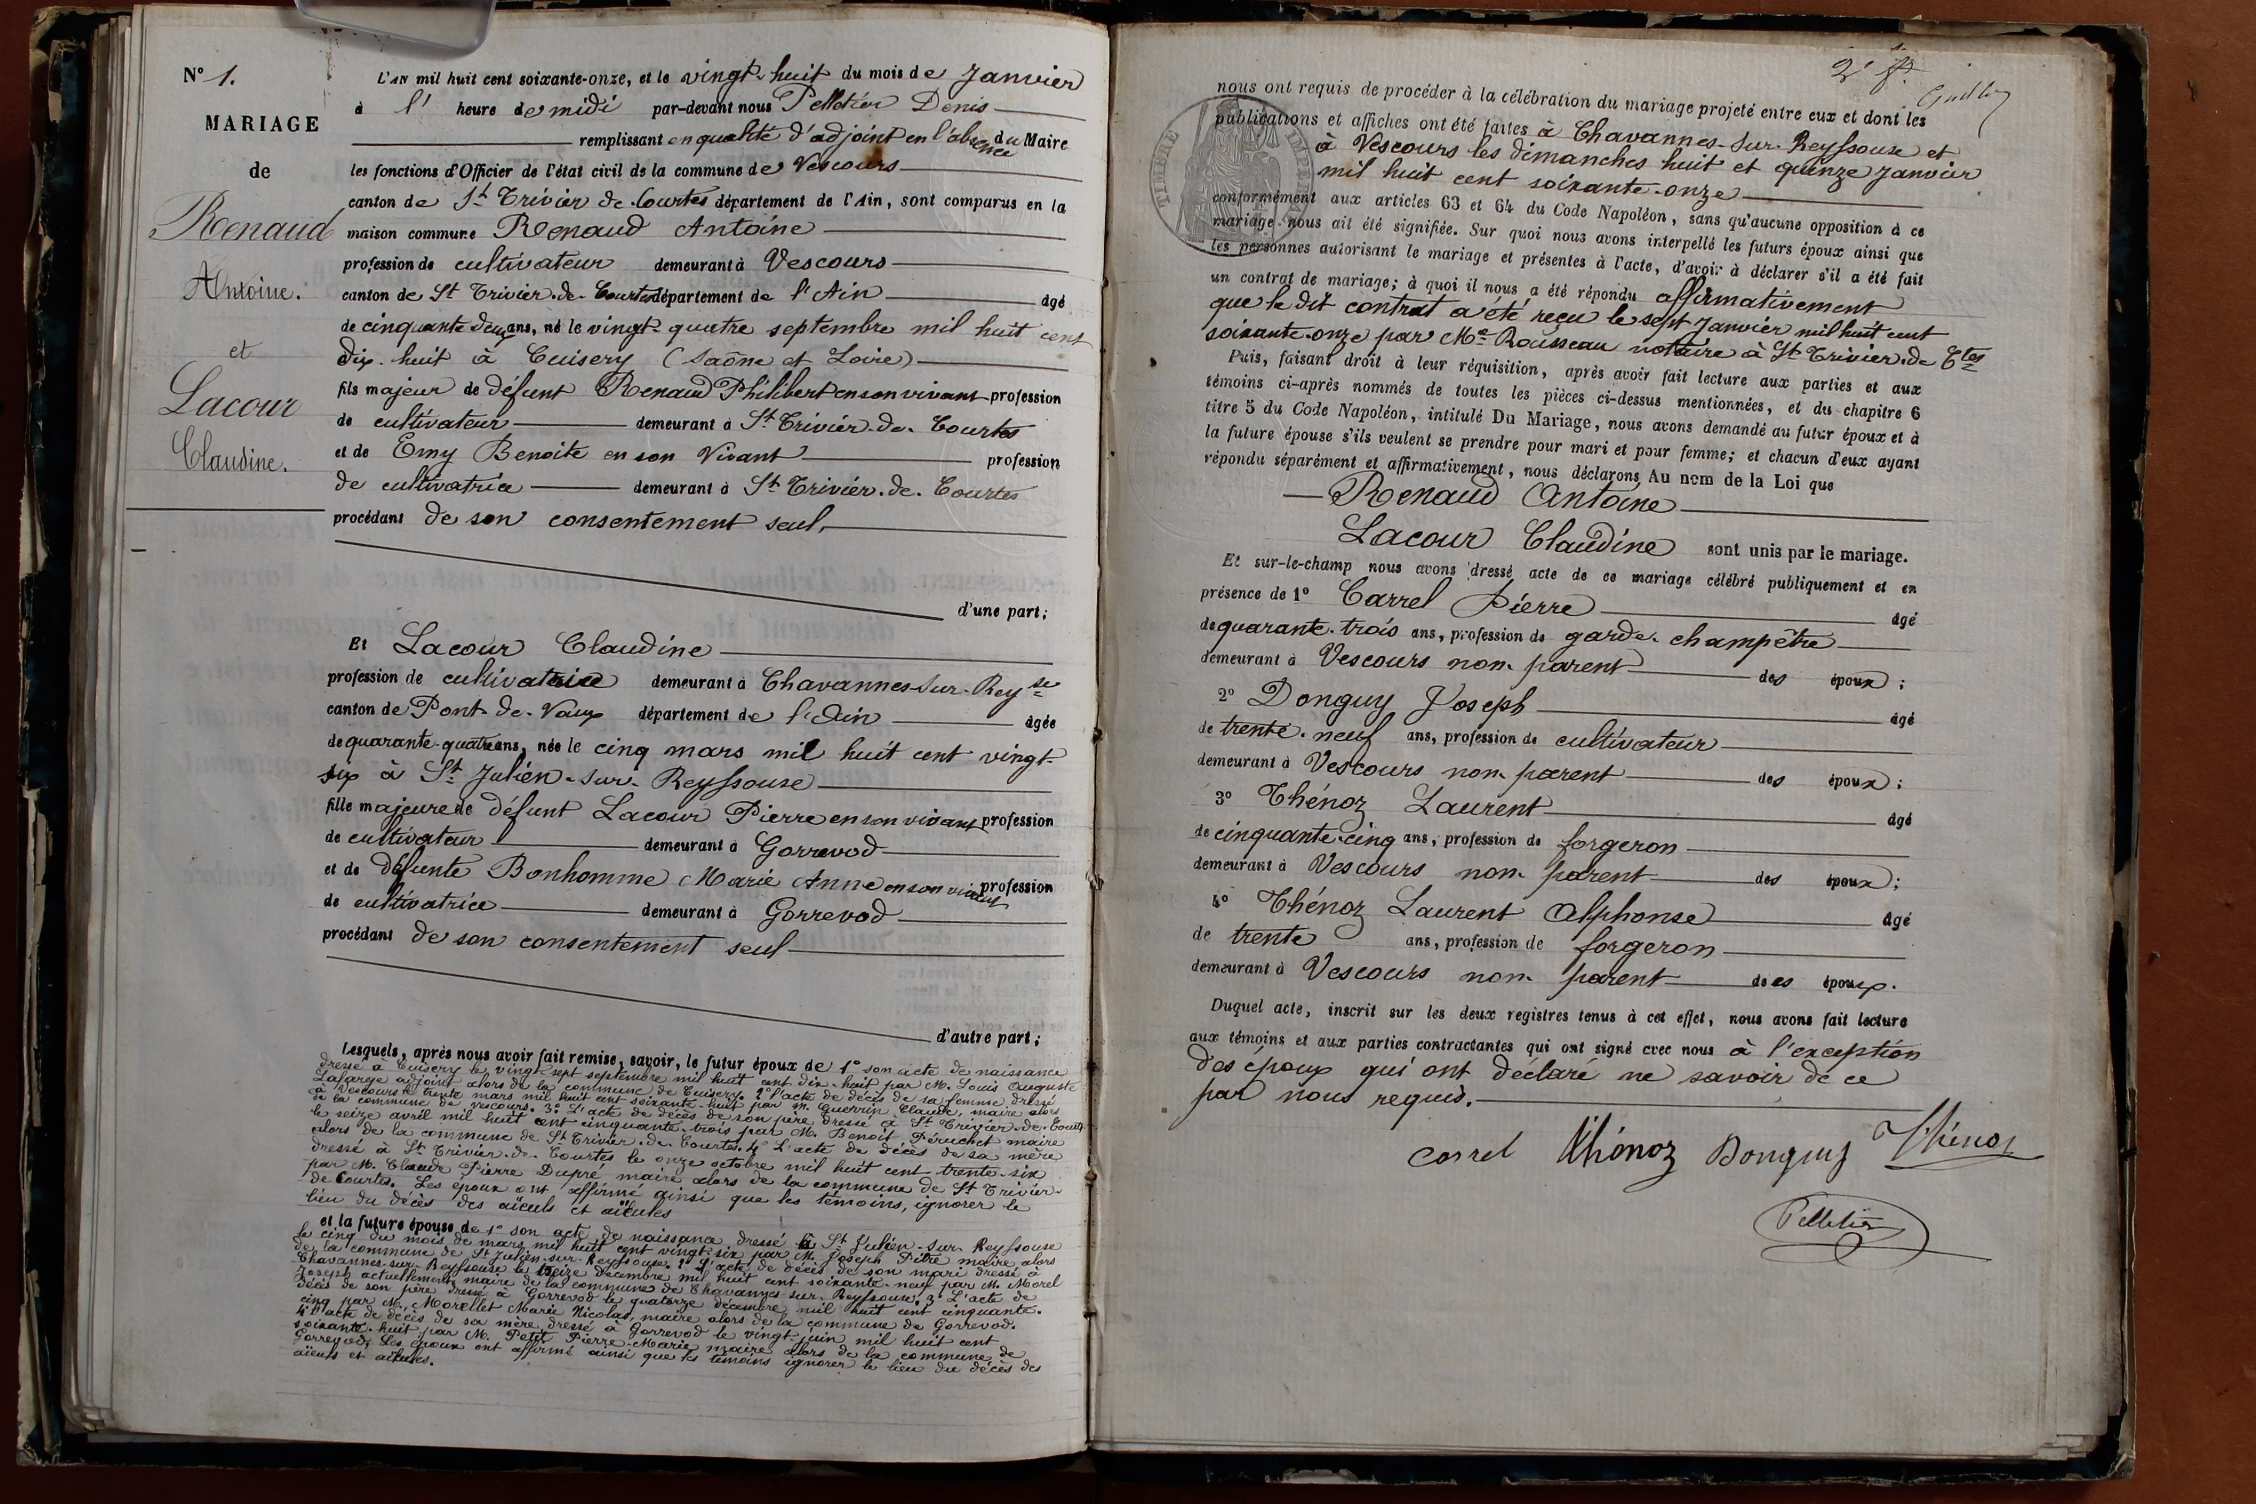 N° 1.
MARIAGE
de
Renaud
Antoine.
et
Lacour
Claudine.
L'AN mil huit cent soixante-onze, et le vingt-huit du mois de Janvier
à l' heure de midi par-devant nous Pelletier Denis
remplissant en qualité d'adjoint en l'absence du Maire
les fonctions d'Officier de l'état civil de la commune de Vescours
canton de St Trivier de Courtes département de l'Ain, sont comparus en la
maison commune Renaud Antoine
profession de cultivateur demeurant à Vescours
canton de St Trivier-de-Courtes département de l'Ain âgé
de cinquante deux ans, né le vingt-quatre septembre mil huit cent
dix-huit à Cuisery (Saône et Loire)
fils majeur de défunt Renaud Philibert en son vivant profession
de cultivateur demeurant à St Trivier-de-Courtes
et de Emy Benoite en son Vivant profession
de cultivatrice demeurant à St Trivier-de-Courtes
procédant de son consentement seul,
d'une part;
Et Lacour Claudine
profession de cultivatrice demeurant à Chavannes-sur-Reysse
canton de Pont-de-Vaux département de l'Ain âgée
de quarante-quatre ans, née le cinq mars mil huit cent vingt-
six à St Julien-sur-Reyssouse
fille majeure de défunt Lacour Pierre en son vivant profession
de cultivateur demeurant à Gorrevod
et de défunte Bonhomme Marie Anne en son vivant profession
de cultivatrice demeurant à Gorrevod
procédant de son consentement seul
d'autre part;
Lesquels, après nous avoir fait remise, savoir, le futur époux de 1° son acte de naissance
dressé à Cuisery le vingt-sept septembre mil huit cent dix-huit par M. Louis Auguste
Lafarge adjoint alors de la commune de Cuisery. 2° l'acte de décès de sa femme dressé
à Vescours le trente mars mil huit cent soixante-huit par M. Guerrin Claude, maire alors
de la commune de Vescours. 3° L'acte de décès de son père dressé à St Trivier-de-Courtes
le seize avril mil huit cent cinquante-trois par M. Benoit Péruchet maire
alors de la commune de St Trivier-de-Courtes. 4° L'acte de décès de sa mère
dressé à St Trivier-de-Courtes le onze octobre mil huit cent trente-six
par M. Claude Pierre Dupré maire alors de la commune de St Trivier-
de Courtes. Les époux ont affirmé ainsi que les témoins, ignorer le
lieu du décès des aïeuls et aïeules
et la future épouse de 1° son acte de naissance dressé à St Julien-sur-Reyssouse
le cinq du mois de mars mil huit cent vingt-six par M. Joseph Pitre maire alors
de la commune de St Julien-sur-Reyssouse. 2° L'acte de décès de son mari dressé à
Chavannes-sur-Reyssouse le seize décembre mil huit cent soixante-neuf par M. Morel
Joseph actuellement maire de la commune de Chavannes-sur-Reyssouse. 3° L'acte de
décès de son père dressé à Gorrevod le quatorze décembre mil huit cent cinquante-
cinq par M. Morellet Marie Nicolas, maire alors de la commune de Gorrevod.
4° l'acte de décès de sa mère dressé à Gorrevod le vingt juin mil huit cent
soixante-huit par M. Petit Pierre-Marie maire alors de la commune de
Gorrevod. Les époux ont affirmé ainsi que les témoins ignorer le lieu du décès des
aïeuls et aïeules.
2e
TIMBRE
nous ont requis de procéder à la célébration du mariage projeté entre eux et dont les
publications et affiches ont été faites à Chavannes-sur-Reyssouse et
à Vescours les dimanches huit et quinze janvier
mil huit cent soixante-onze
conformément aux articles 63 et 64 du Code Napoléon, sans qu'aucune opposition à ce
mariage nous ait été signifiée. Sur quoi nous avons interpellé les futurs époux ainsi que
les personnes autorisant le mariage et présentes à l'acte, d'avoir à déclarer s'il a été fait
un contrat de mariage; à quoi il nous a été répondu affirmativement
que le dit contrat a été reçu le sept Janvier mil huit cent
soixante-onze par Me Rousseau notaire à St Trivier-de Ctes
Puis, faisant droit à leur réquisition, après avoir fait lecture aux parties et aux
témoins ci-après nommés de toutes les pièces ci-dessus mentionnées, et du chapitre 6
titre 5 du Code Napoléon, intitulé Du Mariage, nous avons demandé au futur époux et à
la future épouse s'ils veulent se prendre pour mari et pour femme; et chacun d'eux ayant
répondu séparément et affirmativement, nous déclarons Au nom de la Loi que
Renaud Antoine
Lacour Claudine sont unis par le mariage.
Et sur-le-champ nous avons dressé acte de ce mariage célébré publiquement et en
présence de 1° Carrel Pierre âgé
de quarante-trois ans, profession de garde-champêtre
demeurant à Vescours non parent des époux;
2° Donguy Joseph âgé
de trente-neuf ans, profession de cultivateur
demeurant à Vescours non parent des époux;
3° Thénoz Laurent âgé
de cinquante-cinq ans, profession de forgeron
demeurant à Vescours non parent des époux;
4° Thénoz Laurent Alphonse âgé
de trente ans, profession de forgeron
demeurant à Vescours non parent des époux.
Duquel acte, inscrit sur les deux registres tenus à cet effet, nous avons fait lecture
aux témoins et aux parties contractantes qui ont signé avec nous à l'exception
des époux qui ont déclaré ne savoir de ce
par nous requis.
Carrel Thénoz Donguy Thénoz
Pelletier